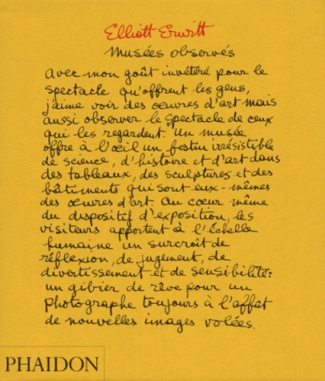 Elliott Erwitt
Musées observés
Avec mon goût invétéré pour le
spectacle qu'offrent les gens,
j'aime voir des œuvres d'art mais
aussi observer le spectacle de ceux
qui les regardent. Un musée
offre à l'œil un festin irrésistible
de science, d'histoire et d'art dans
des tableaux, des sculptures et des
bâtiments qui sont eux-mêmes
des œuvres d'art. Au cœur même
du dispositif d'exposition, les
visiteurs apportent à l'échelle
humaine un surcroît de
réflexion, de jugement, de
divertissement et de sensibilité:
un gibier de rêve pour un
photographe toujours à l'affût
de nouvelles images volées.
PHAIDON